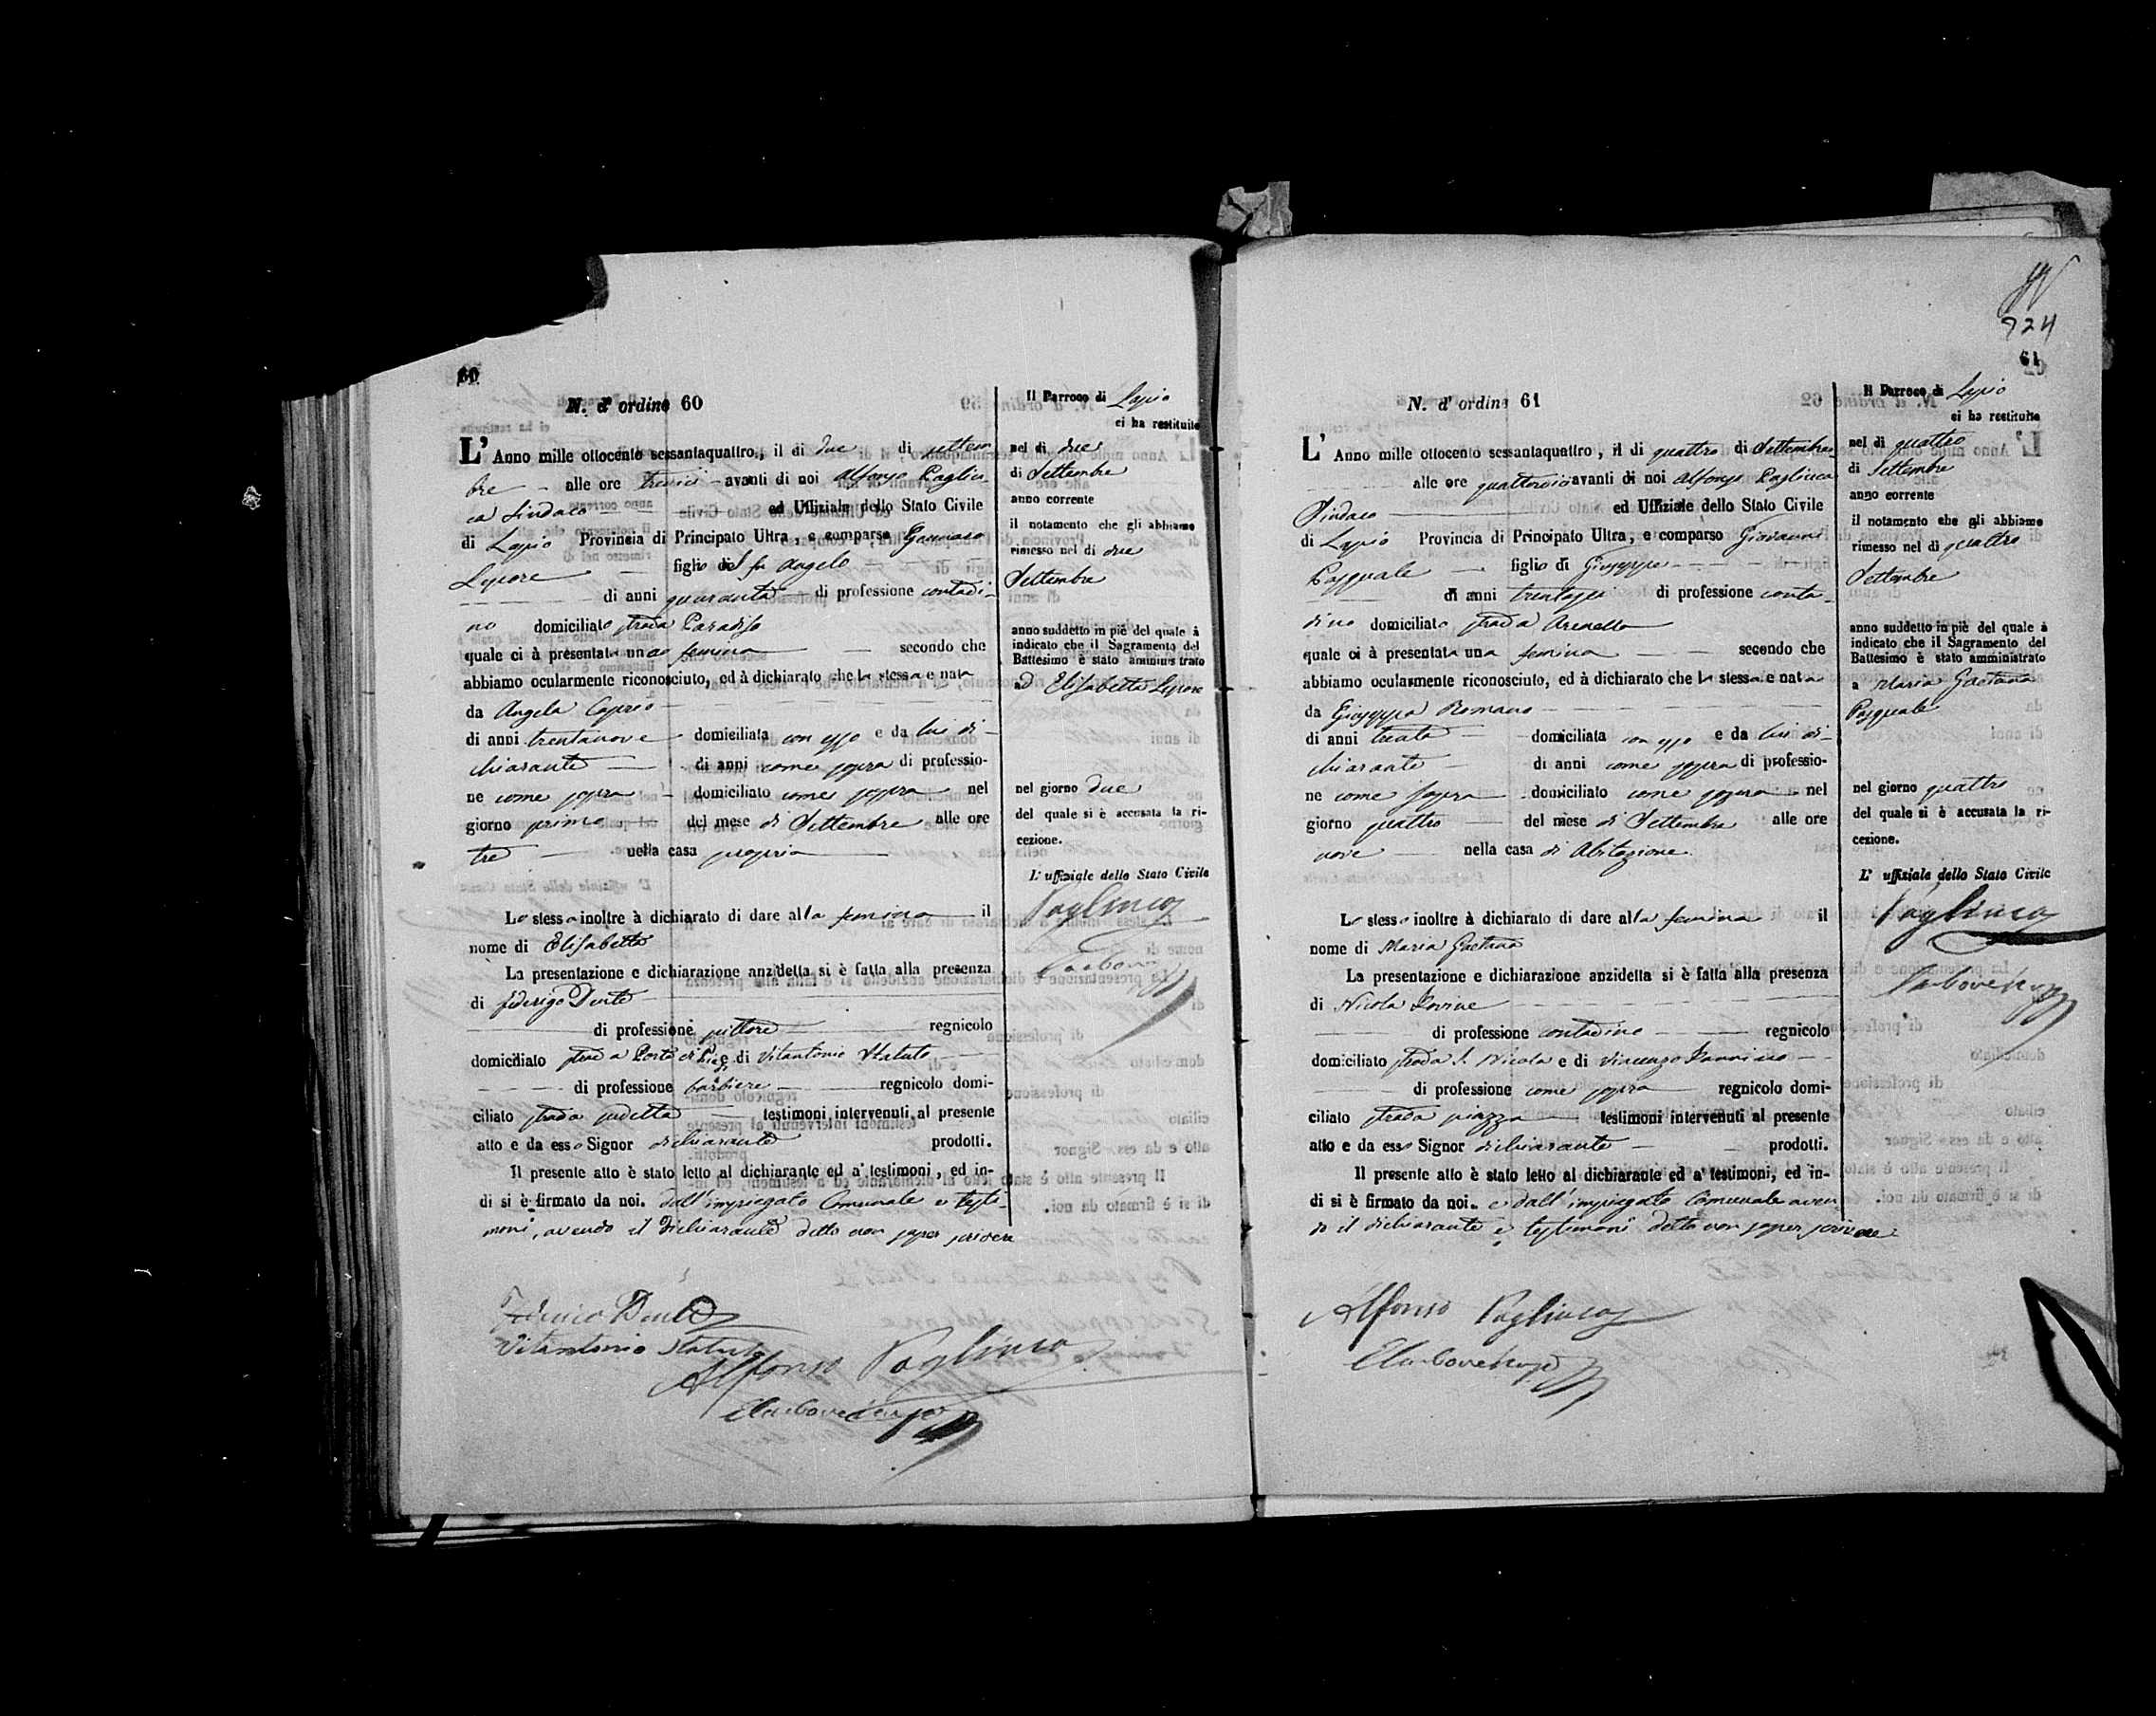 60
N. d' ordine 60
L' Anno mille ottocento sessantaquattro, il di due di settem
bre alle ore tredici avanti di noi Alfonso Pagliu-
ca Sindaco ed Uffiziale dello Stato Civile
di Lapio Provincia di Principato Ultra, e comparso Gennaro
Lepore figlio del fu Angelo
di anni quaranta di professione contadi-
no domiciliato strada Paradiso
quale ci à presentata una femina secondo che
abbiamo ocularmente riconosciuto, ed à dichiarato che la stessa e nata
da Angela Caprio
di anni trentanove domiciliata con esso e da lui di-
chiarante di anni come sopra di professio-
ne come sopra domiciliato come sopra nel
giorno primo del mese di Settembre alle ore
tre nella casa propria
Lo stesso inoltre à dichiarato di dare alla femina il
nome di Elisabetta
La presentazione e dichiarazione anzidetta si è fatta alla presenza
di Federigo Dente
di professione pittore regnicolo
domiciliato strada Porta di e di Vitantonio Statuto
di professione barbiere regnicolo domi-
ciliato strada testimoni intervenuti al presente
atto e da esso Signor dichiarante prodotti.
Il presente atto è stato letto al dichiarante ed a' testimoni, ed in-
di si è firmato da noi. dall'impiegato Comunale e testi-
moni, avendo il dichiarante detto non saper scrivere
Federico Dente
Vitantonio Statuto
Alfonso Pagliuca
Il Parroco di Lapio
ci ha restituito
nel di due
di Settembre
anno corrente
il notamento che gli abbiamo
rimesso nel di due
Settembre
anno suddetto in piè del quale à
indicato che il Sagramento del
Battesimo è stato amministrato
ad Elisabetta Lepore
nel giorno due
del quale si è accusata la ri-
cezione.
L' uffiziale dello Stato Civile
Pagliuca
924
61
N. d' ordine 61
L' Anno mille ottocento sessantaquattro, il di quattro di Settembre
alle ore quattordici avanti di noi Alfonso Pagliuca
Sindaco ed Uffiziale dello Stato Civile
di Lapio Provincia di Principato Ultra, e comparso Giovanni
Pasquale figlio di Giuseppe
di anni trentasei di professione conta-
dino domiciliato strada Arenella
quale ci à presentata una femina secondo che
abbiamo ocularmente riconosciuto, ed à dichiarato che la stessa e nata
da Giuseppa Romano
di anni trenta domiciliata con esso e da lui di-
chiarante di anni come sopra di professio-
ne come sopra domiciliato come sopra nel
giorno quattro del mese di Settembre alle ore
nove nella casa di Abitazione
Lo stesso inoltre à dichiarato di dare alla femina il
nome di Maria Gaetana
La presentazione e dichiarazione anzidetta si è fatta alla presenza
di Nicola Iovine
di professione contadino regnicolo
domiciliato strada S. Nicola e di Vincenzo Iannino
di professione come sopra regnicolo domi-
ciliato strada piazza testimoni intervenuti al presente
atto e da esso Signor dichiarante prodotti.
Il presente atto è stato letto al dichiarante ed a' testimoni, ed in-
di si è firmato da noi. e dall'impiegato Comunale aven
do il dichiarante e testimoni detto non saper scrivere
Alfonso Pagliuca
Il Parroco di Lapio
ci ha restituito
nel di quattro
di Settembre
anno corrente
il notamento che gli abbiamo
rimesso nel di quattro
Settembre
anno suddetto in piè del quale à
indicato che il Sagramento del
Battesimo è stato amministrato
a Maria Gaetana
Pasquale
nel giorno quattro
del quale si è accusata la ri-
cezione.
L' uffiziale dello Stato Civile
Pagliuca